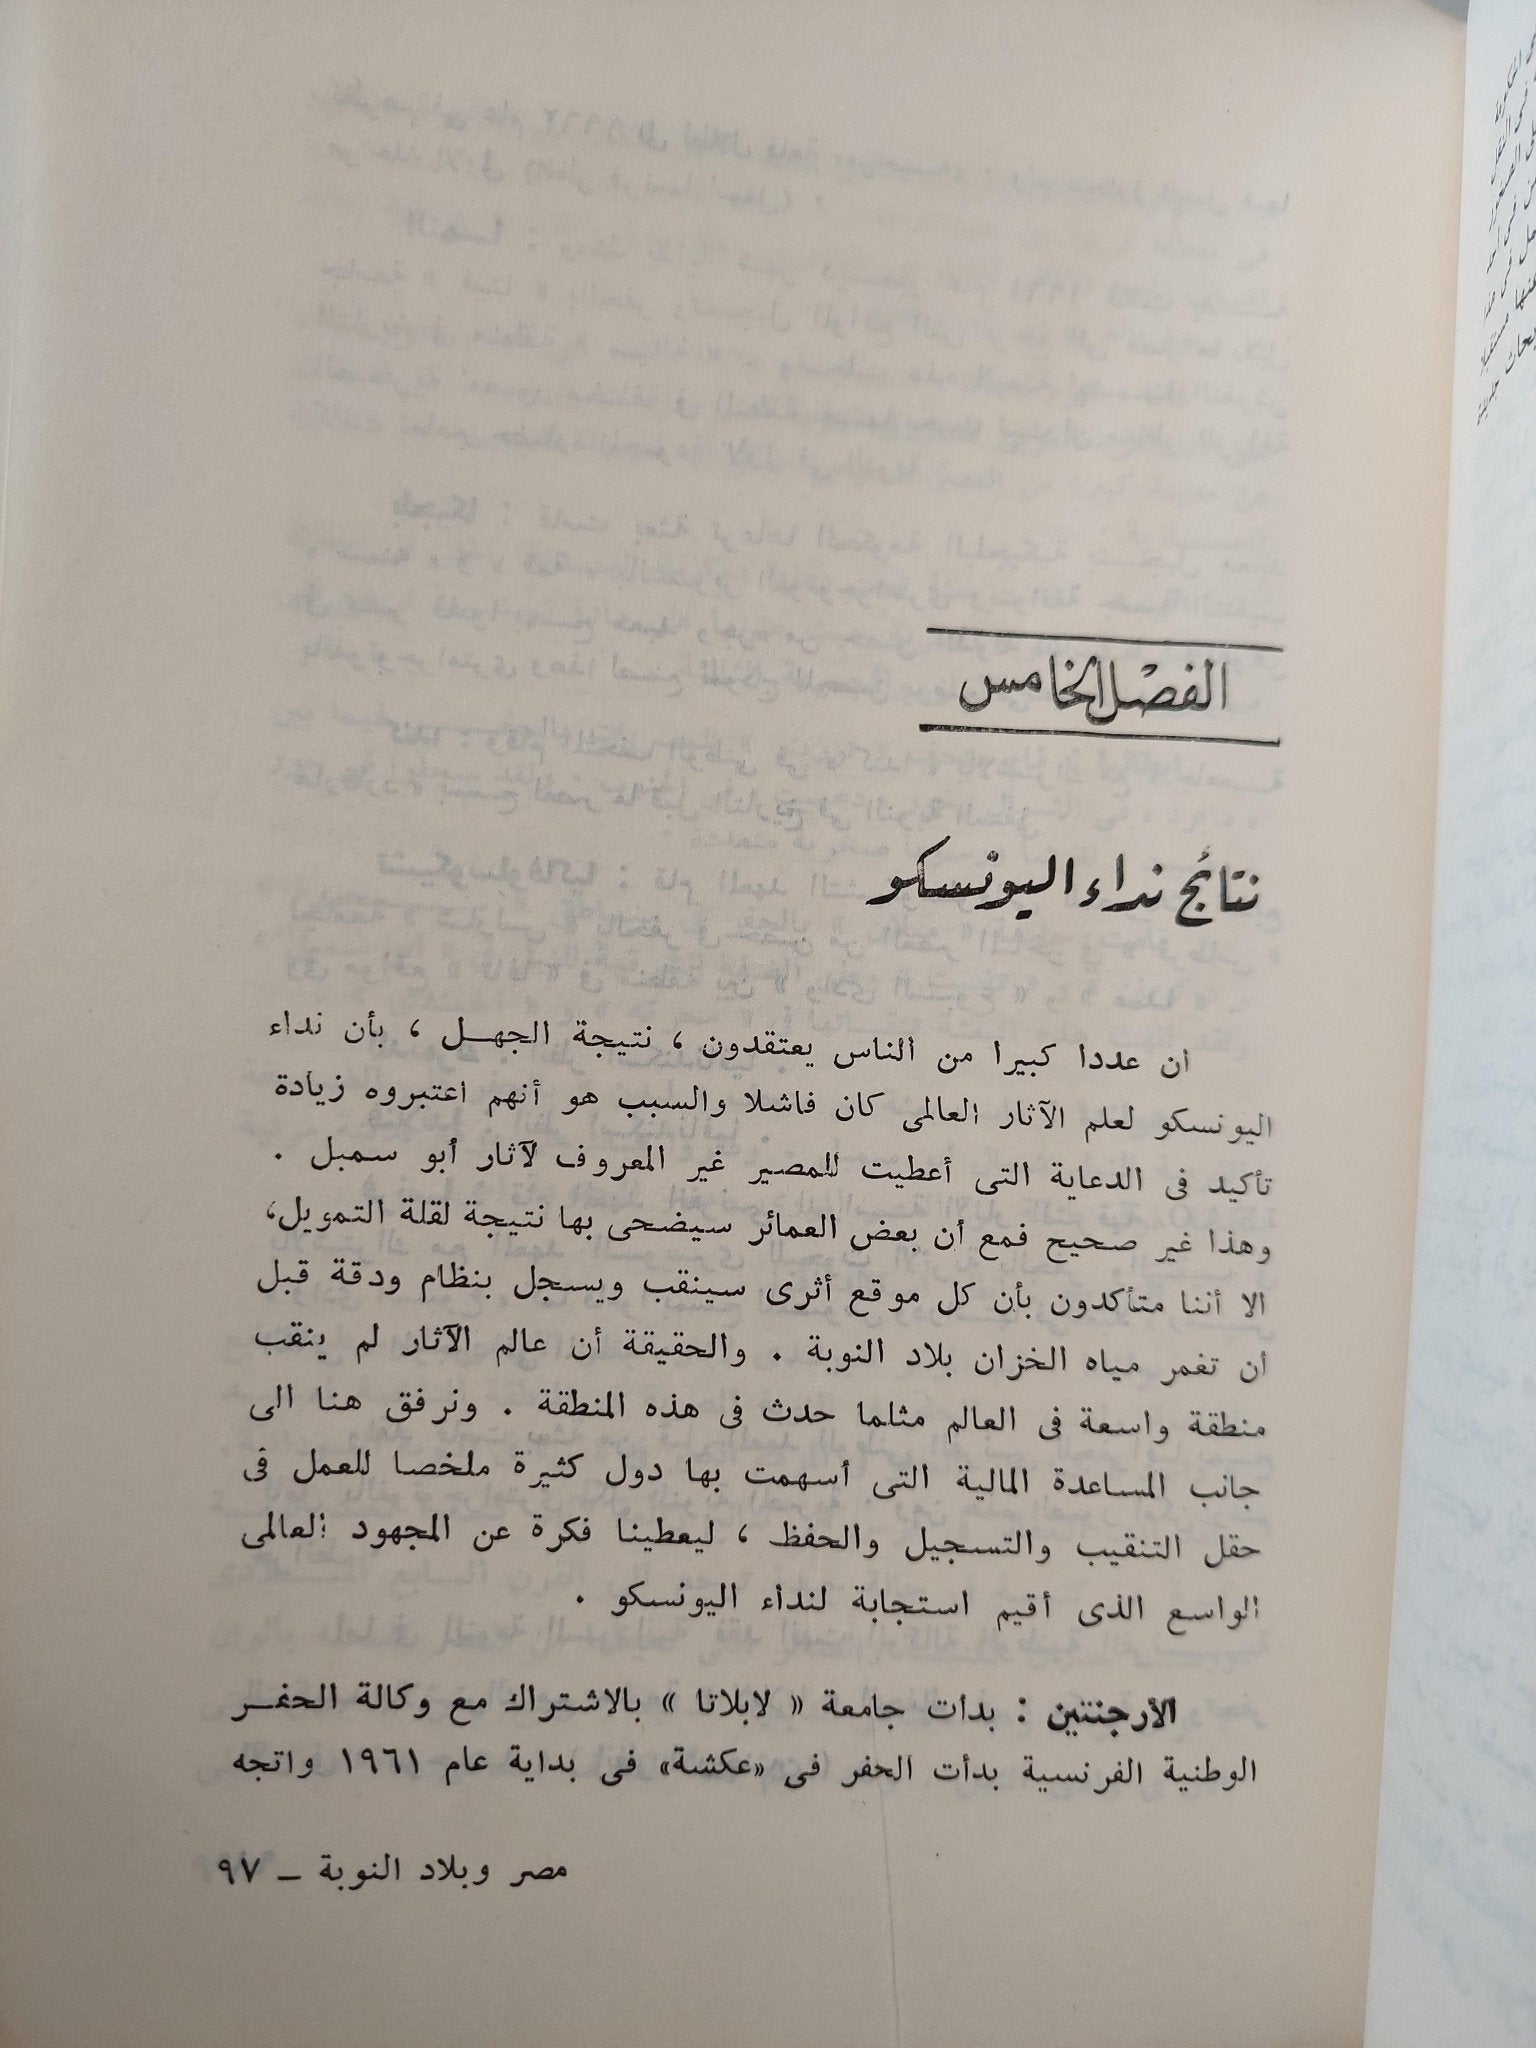 الفصل الخامس
نتائج نداء اليونسكو
ان عددا كبيرا من الناس يعتقدون ، نتيجة الجهـــل ، بأن نداء
اليونسكو لعلم الآثار العالمى كان فاشلا والسبب هو أنهم اعتبروه زيادة
تأكيد فى الدعاية التى أعطيت للمصير غير المعروف لآثار أبو سمبل .
وهذا غير صحيح فمع أن بعض العمائر سيضحى بها نتيجة لقلة التمويل،
الا أننا متأكدون بأن كل موقع أثرى سينقب ويسجل بنظام ودقة قبل
أن تغمر مياه الخزان بلاد النوبة . والحقيقة أن عالم الآثار لم ينقب
منطقة واسعة فى العالم مثلما حدث فى هذه المنطقة . ونرفق هنا الى
جانب المساعدة المالية التى أسهمت بها دول كثيرة ملخصا للعمل فى
حقل التنقيب والتسجيل والحفظ ، ليعطينا فكرة عن المجهود العالمى
الواسع الذى أقيم استجابة لنداء اليونسكو .
الأرجنتين : بدأت جامعة « لابلاتا » بالاشتراك مع وكالة الحفـــر
الوطنية الفرنسية بدأت الحفر فى «عكشة» فى بداية عام ١٩٦١ واتجه
مصر وبلاد النوبة ــ ٩٧